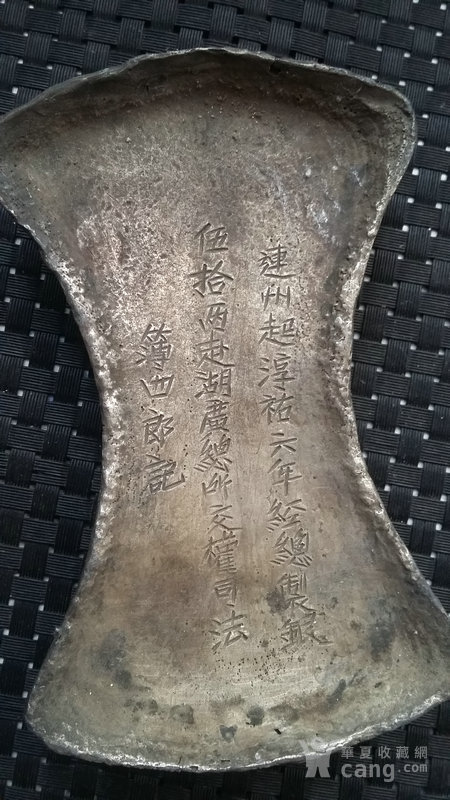 連州起淳祐六年經總製銀
伍拾兩赴湖廣總所交權司法
簿四郎記
華夏收藏網
cang.com